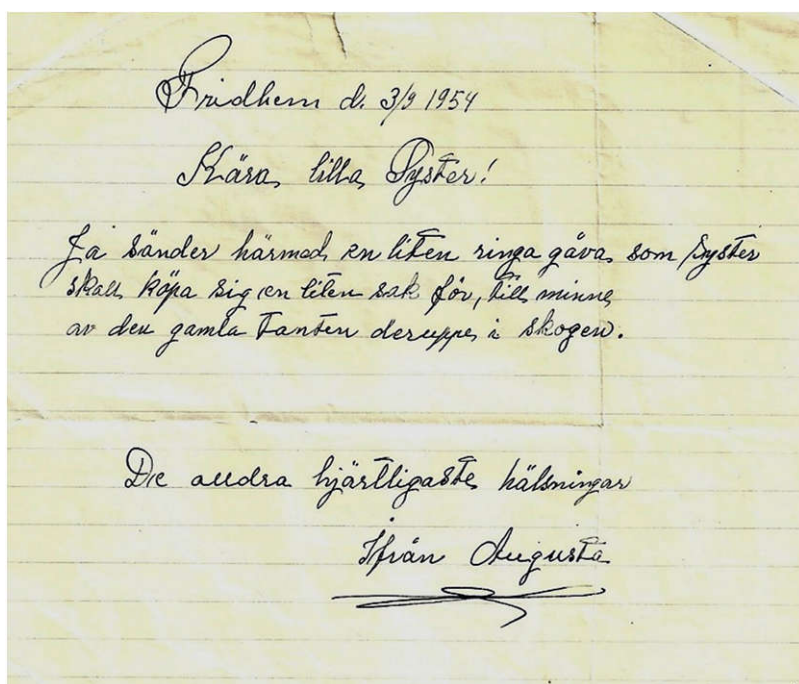 Fridhem d. 3/9 1954
Kära lilla Syster!
Ja sänder härmed en liten ringa gåva som Syster
skall köpa sig en liten sak för, till minne
av den gamla tanten deruppe i skogen.
De alldra hjärtligaste hälsningar
Ifrån Augusta